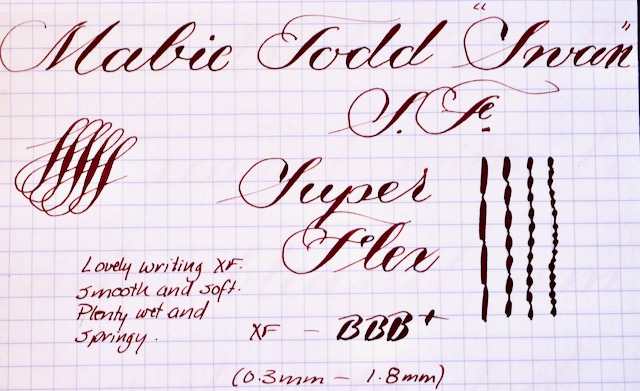 Mabie Todd "Swan"
S. Fe.
Super
Flex
Lovely writing XF.
smooth and soft.
Plenty wet and
springy.
XF – BBB+
(0.3mm – 1.8mm)